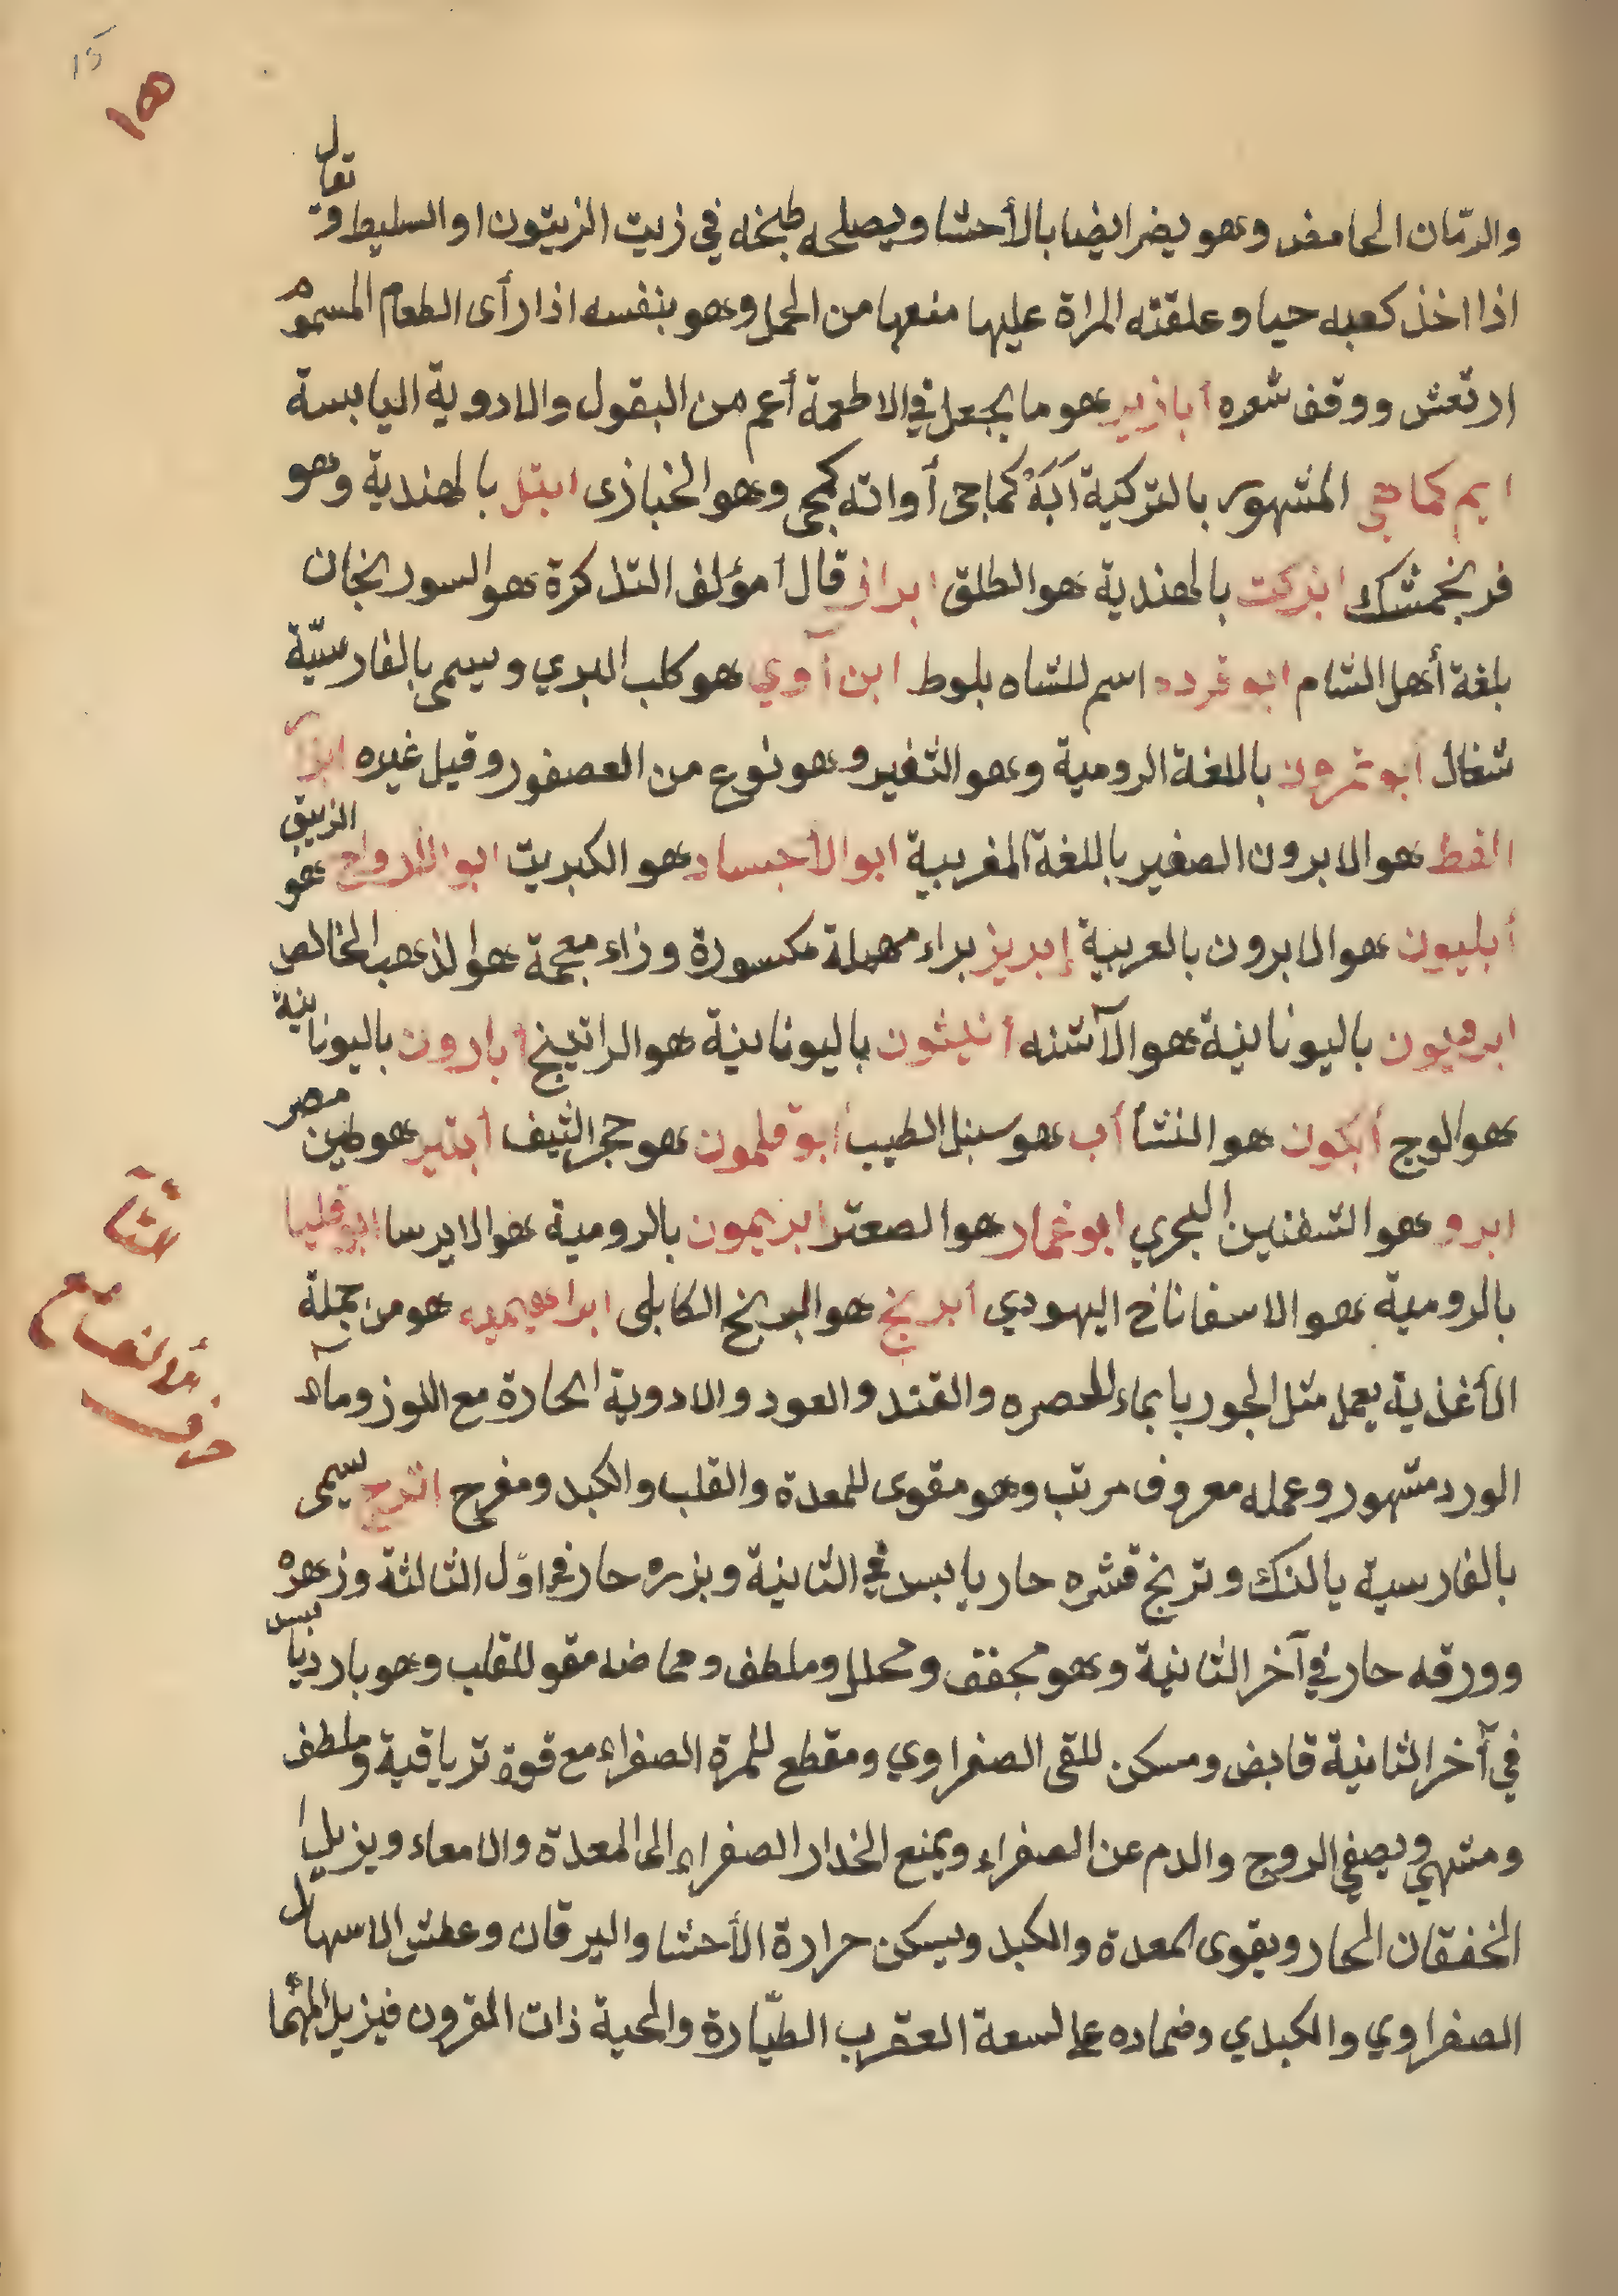 15
١٥
والرّمان الحامض وهو يضر ايضا بالأحشا ويصلحه طبخه في زيت الزيتون او السليط وتقال
اذا اخذ كعبه حيا وعلقته المراة عليها منعها من الحمل وهو بنفسه اذا رأى الطعام المسموم
ارتعش ووقف شعره أبازير هو ما يجعل في الاطعمة أعم من البقول والادوية اليابسة
ايم كماجي المشهور بالتركية اَبَهْ كماجى أواته كمجى وهو الخبازى ابتل بالهندية وهو
فرنجمشك ابرکت بالهندية هو الطلق ابراز قال أمؤلف التذكرة هو السورنجان
بلغة أهل الشام ابو قرده اسم للشاه بلوط ابن آوي هو كلب البري ويسمى بالفارسيّة
شغال أبو تمرون باللغة الرومية وهو الثغير وهو نوع من العصفور وقيل غيره ابزآ
القط هو الابرون الصغير باللغة المغربية ابو الاجساد هو الكبريت ابو الارواح هو الزيبق
أبليون هو الابرون بالعربية إبريز براء مهملة مكسورة وزاء معجمة هو الذهب الخالص
ابريون باليونانية هو الآشنه أنيثون باليونانية هو الراتينج أبارون باليونانية
هو الوج أبكون هو النشا أب هو سنبل الطيب أبو قلمون هو حجر الثيف أبتير هو طين مصر
ابرو هو الشفنين البحري ابو غمار هو الصعتر ابريمون بالرومية هو الايرسا ابو قليا
بالرومية هو الاسفاناخ اليهودي أبريخ هو البرنج الكابلى ابراهيميه هو من جملة
الأغذية يعمل مثل الجوربا بماء الحصره والقند والعود والادوية الحارة مع اللوز ومآء
الورد مشهور وعمله معروف مرتب وهو مقوى للمعدة والقلب والكبد ومفرح اترج يسمى
بالفارسية يالنك وترنج قشره حار يابس في الثانية وبزره حار في اوّل الثالثة وزهره
وورقه حار في آخر الثانية وهو مجفف ومحلل وملطف وحماضه مقو للقلب وهو بارد يابس
في آخر الثانية قابض ومسكن للقى الصفراوي ومقطع للمرة الصفراء مع قوة ترياقية وملطف
ومشهي ويصفي الروح والدم عن الصفراء ويمنع انحدار الصفراء الى المعدة والامعاء ويزيل
الخفقان الحار ويقوى المعدة والكبد ويسكن حرارة الأحشا واليرقان وعطش الاسهال
الصفراوي والكبدي وضماده على لسعة العقرب الطيّارة والحية ذات القرون فيزيل المهما
حرف